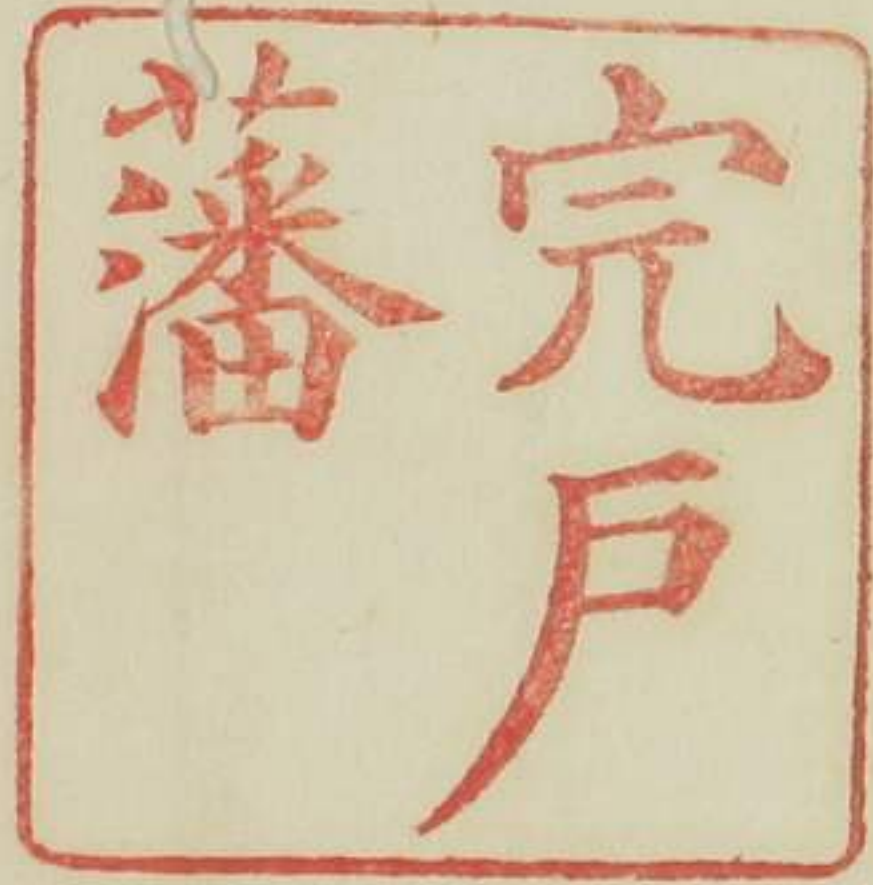 完戸
藩